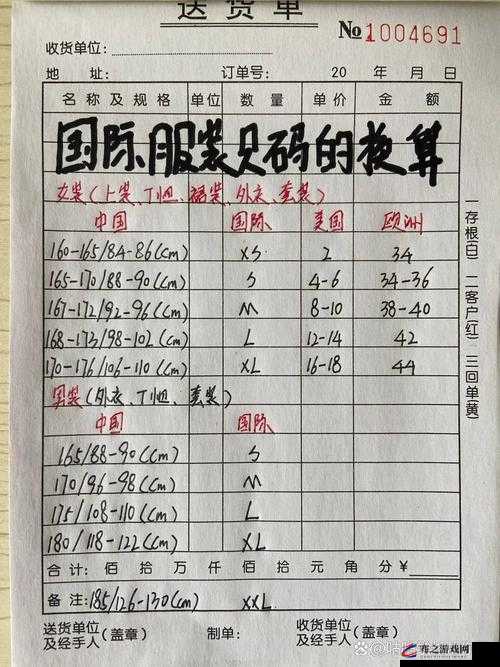 送货单
№1004691
收货单位:
地 址: 订单号: 20 年 月 日
名称及规格 单位 数量 单价 金额
国际服装尺码的换算
女装(上装、T恤、裙装、外衣、套装)
中国 国际 美国 欧洲
160-165/84-86(cm) XS 2 34
165-170/88-90(cm) S 4-6 34-36
167-172/92-96(cm) M 8-10 38-40
168-173/98-102(cm) L 12-14 42
170-176/106-110(cm) XL 16-18 44
男装(外衣、T恤、套装)
中国 国际
165/88-90(cm) S
170/96-98(cm) M
175/108-110(cm) L
180/118-122(cm) XL
合计: 佰 拾 万 仟 佰 拾 元 角 分 ¥
备注: 185/126-130(cm) XXL
送货单位及经手人(盖章) 制单: 收货单位及经手人
一存根(白) 二客户(红) 三回单(黄)